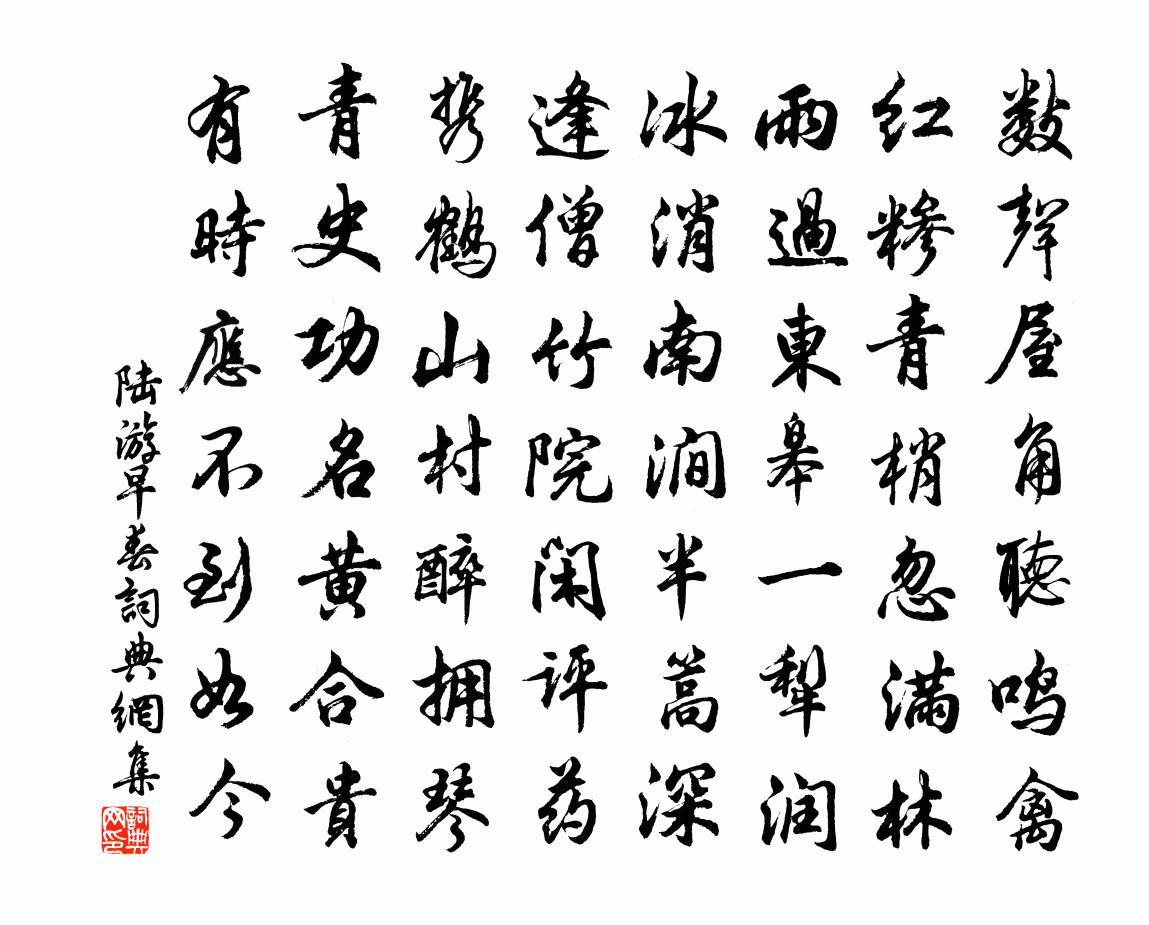 數聲屋角聽鳴禽
紅糝青梢忽滿林
雨過東皋一犁潤
冰消南澗半篙深
逢僧竹院閑評药
携鶴山村醉拥琴
青史功名黄合貴
有時應不到如今
陆游早春詞典網集
詞典网印